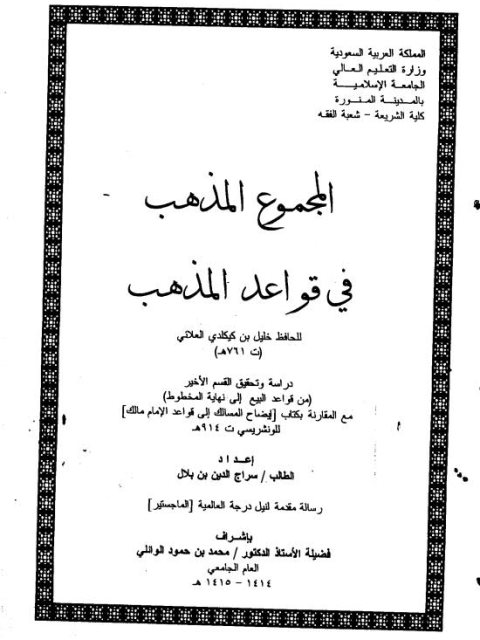 المملكة العربية السعودية
وزارة التعليم العالي
الجامعة الإسلامية
بالمدينة المنورة
كلية الشريعة - شعبة الفقه
المجموع المذهب
في قواعد المذهب
للحافظ خليل بن كيكلدي العلائي
(ت ٧٦١هـ)
دراسة وتحقيق القسم الأخير
(من قواعد البيع إلى نهاية المخطوط)
مع المقارنة بكتاب [إيضاح المسالك إلى قواعد الإمام مالك]
للونشريسي ت ٩١٤هـ
إعداد
الطالب / سراج الدين بن بلال
رسالة مقدمة لنيل درجة العالمية [الماجستير]
بإشراف
فضيلة الأستاذ الدكتور / محمد بن حمود الوائلي
العام الجامعي
١٤١٤ - ١٤١٥ هـ